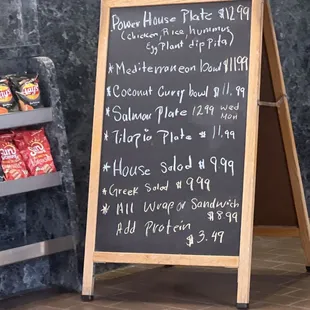 Power House Plate $12.99
(chicken, Rice, hummus,
Egg Plant dip pita)
* Mediterranean bowl $11.99
* Coconut Curry bowl $11.99
* Salmon Plate 12.99 Wed
Mon
* Tilapia Plate $11.99
* House Salad $9.99
* Greek Salad $9.99
* All Wrap or Sandwich
$8.99
Add Protein
$3.49
Lay's
SUN